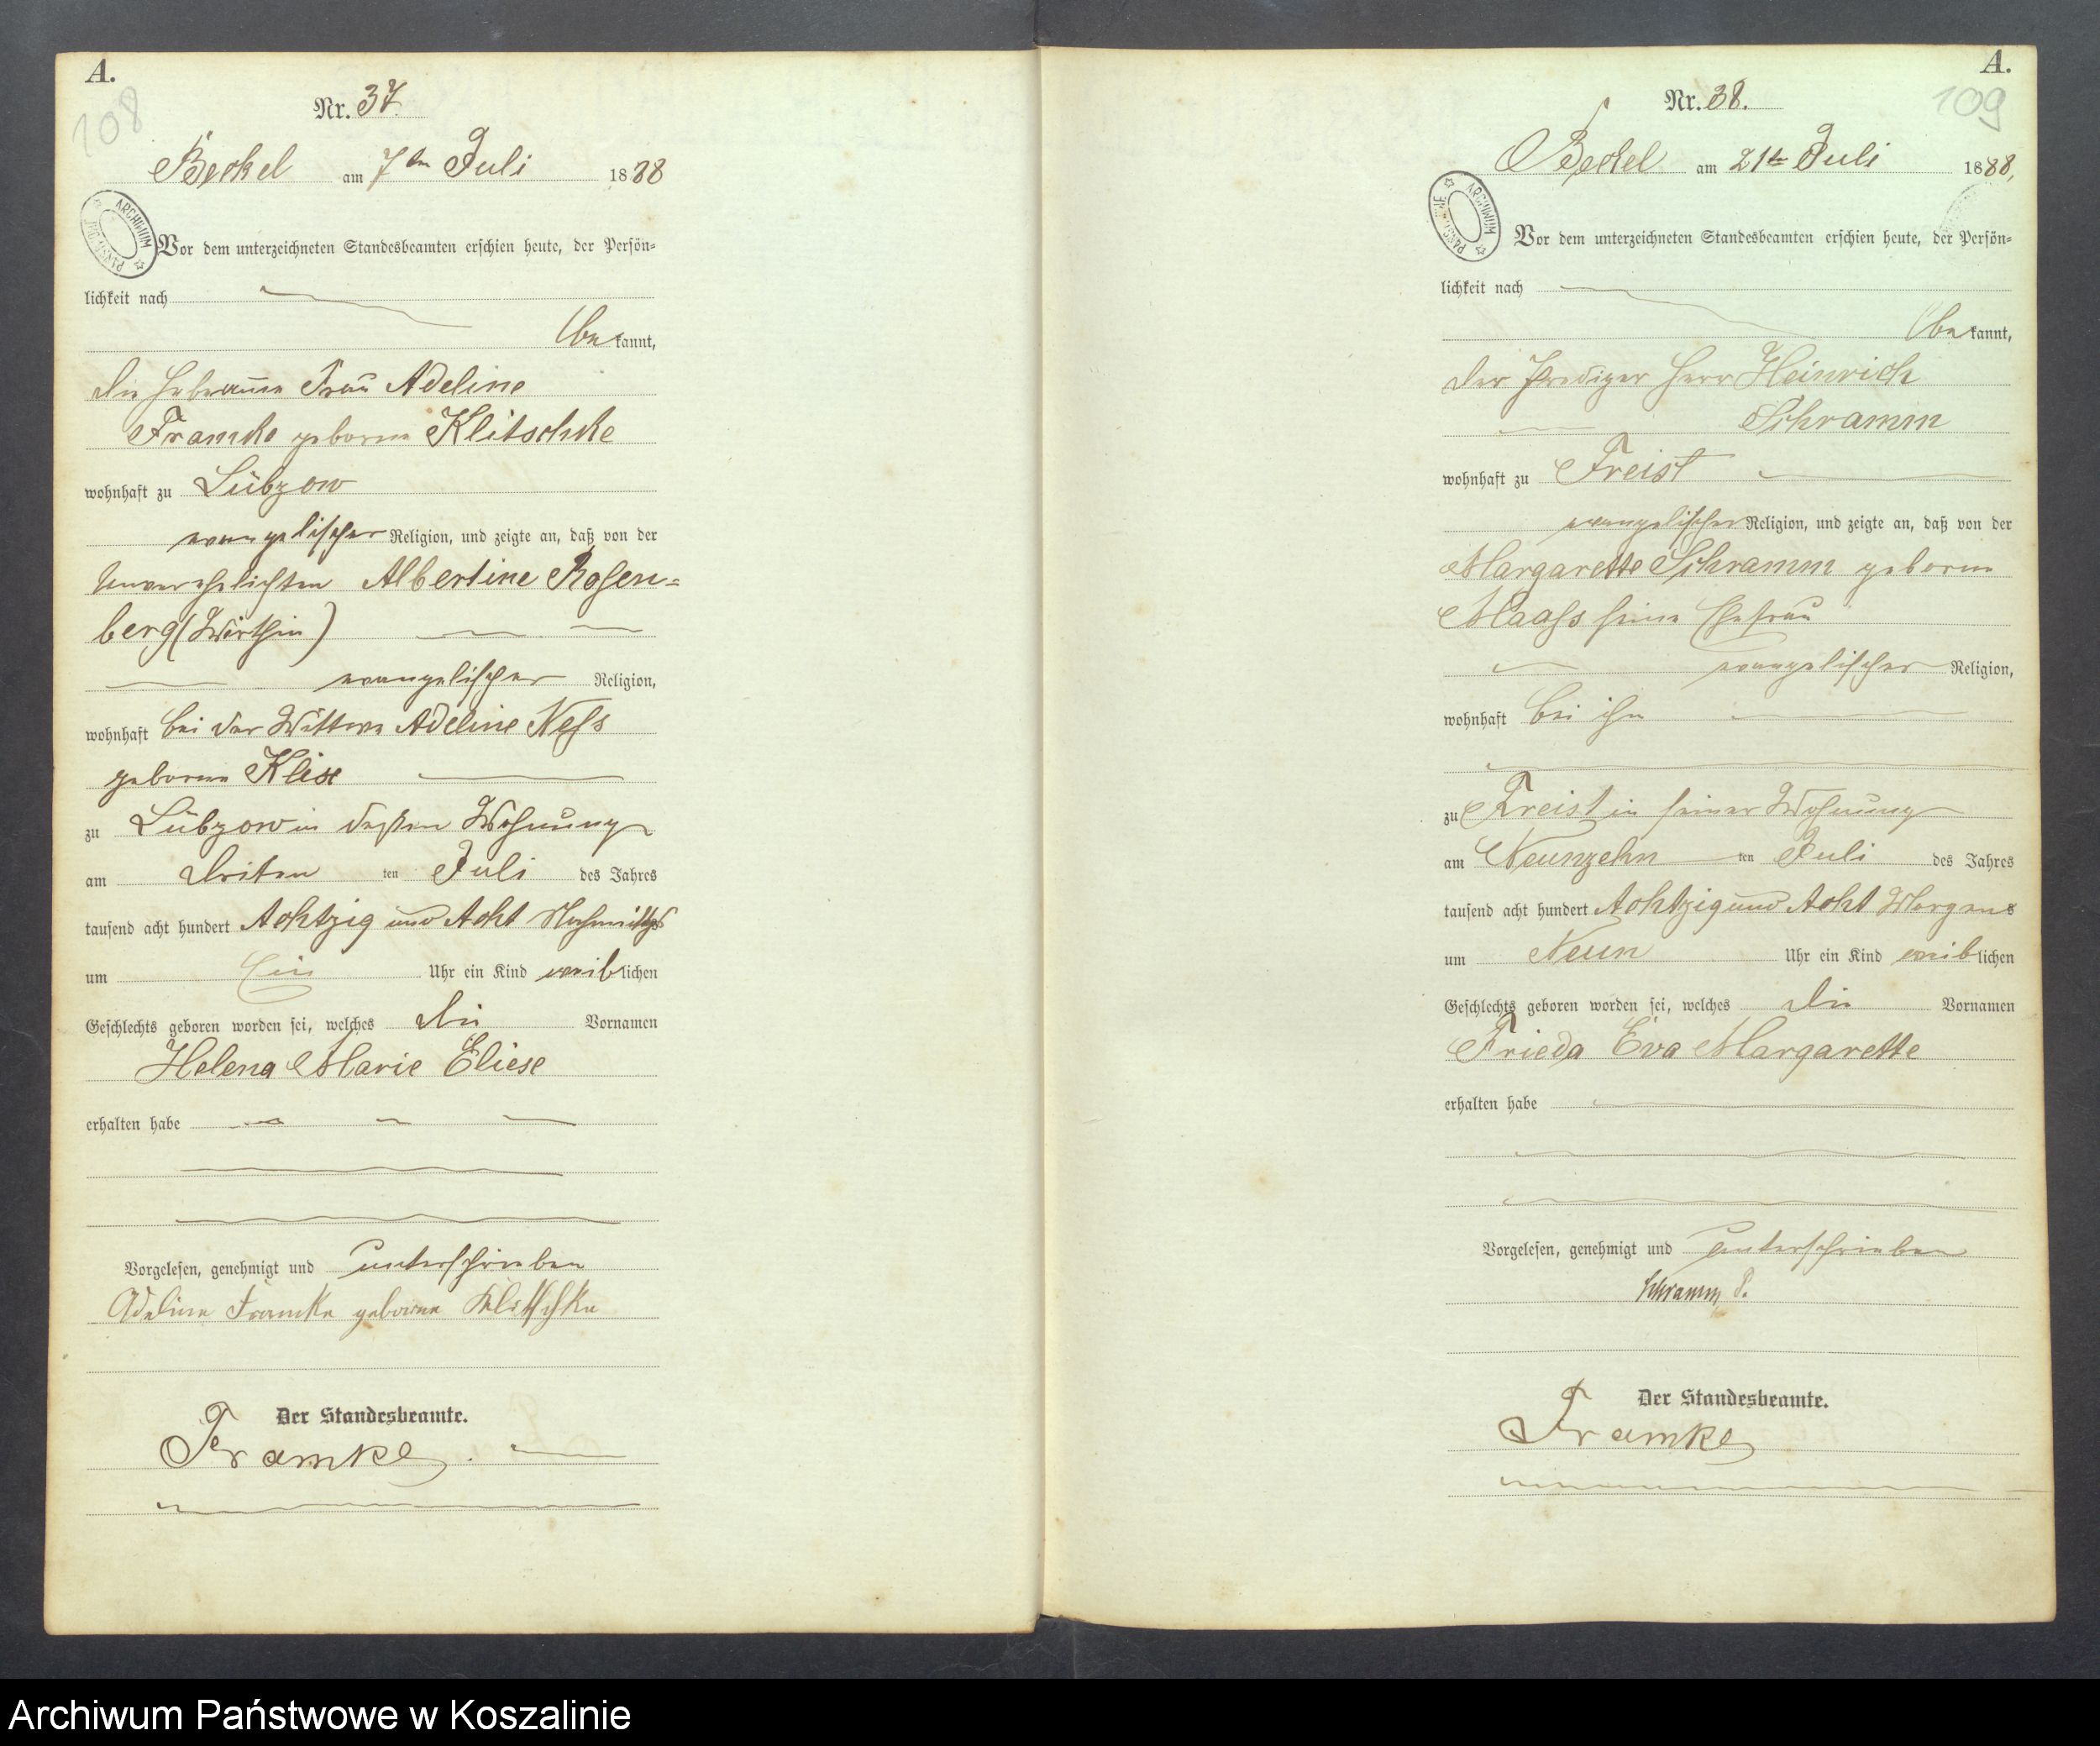 A.
108
Nr. 37.
Beckel am 7ten Juli 1888
ARCHIWUM PAŃSTWOWE
Vor dem unterzeichneten Standesbeamten erschien heute, der Persön=
lichkeit nach
bekannt,
die Hebamme Frau Adeline
Framke geborene Klitschke
wohnhaft zu Lübzow
evangelischer Religion, und zeigte an, daß von der
Unverehelichten Albertine Rosen=
berg (Wirthin)
evangelischer Religion,
wohnhaft bei der Wittwe Adeline Neß
geborene Klise
zu Lübzow in deßen Wohnung
am Driten ten Juli des Jahres
tausend acht hundert Achtzig und Acht Nachmittgs
um Ein Uhr ein Kind weiblichen
Geschlechts geboren worden sei, welches die Vornamen
Helena Marie Eliese
erhalten habe
Vorgelesen, genehmigt und unterschrieben
Adeline Framke geborene Klitschke
Der Standesbeamte.
Framke.
A.
109
Nr. 38.
Beckel am 21te Juli 1888,
ARCHIWUM PAŃSTWOWE
Vor dem unterzeichneten Standesbeamten erschien heute, der Persön=
lichkeit nach
bekannt,
der Prediger Herr Heinrich
Schramm
wohnhaft zu Freist
evangelischer Religion, und zeigte an, daß von der
Margarette Schramm geborne
Maaß seine Ehefrau
evangelischer Religion,
wohnhaft bei ihm
zu Freist in seiner Wohnung
am Neunzehn ten Juli des Jahres
tausend acht hundert Achtzig und Acht Morgens
um Neun Uhr ein Kind weiblichen
Geschlechts geboren worden sei, welches die Vornamen
Frieda Eva Margarette
erhalten habe
Vorgelesen, genehmigt und unterschrieben
Schramm, P.
Der Standesbeamte.
Framke
Archiwum Państwowe w Koszalinie